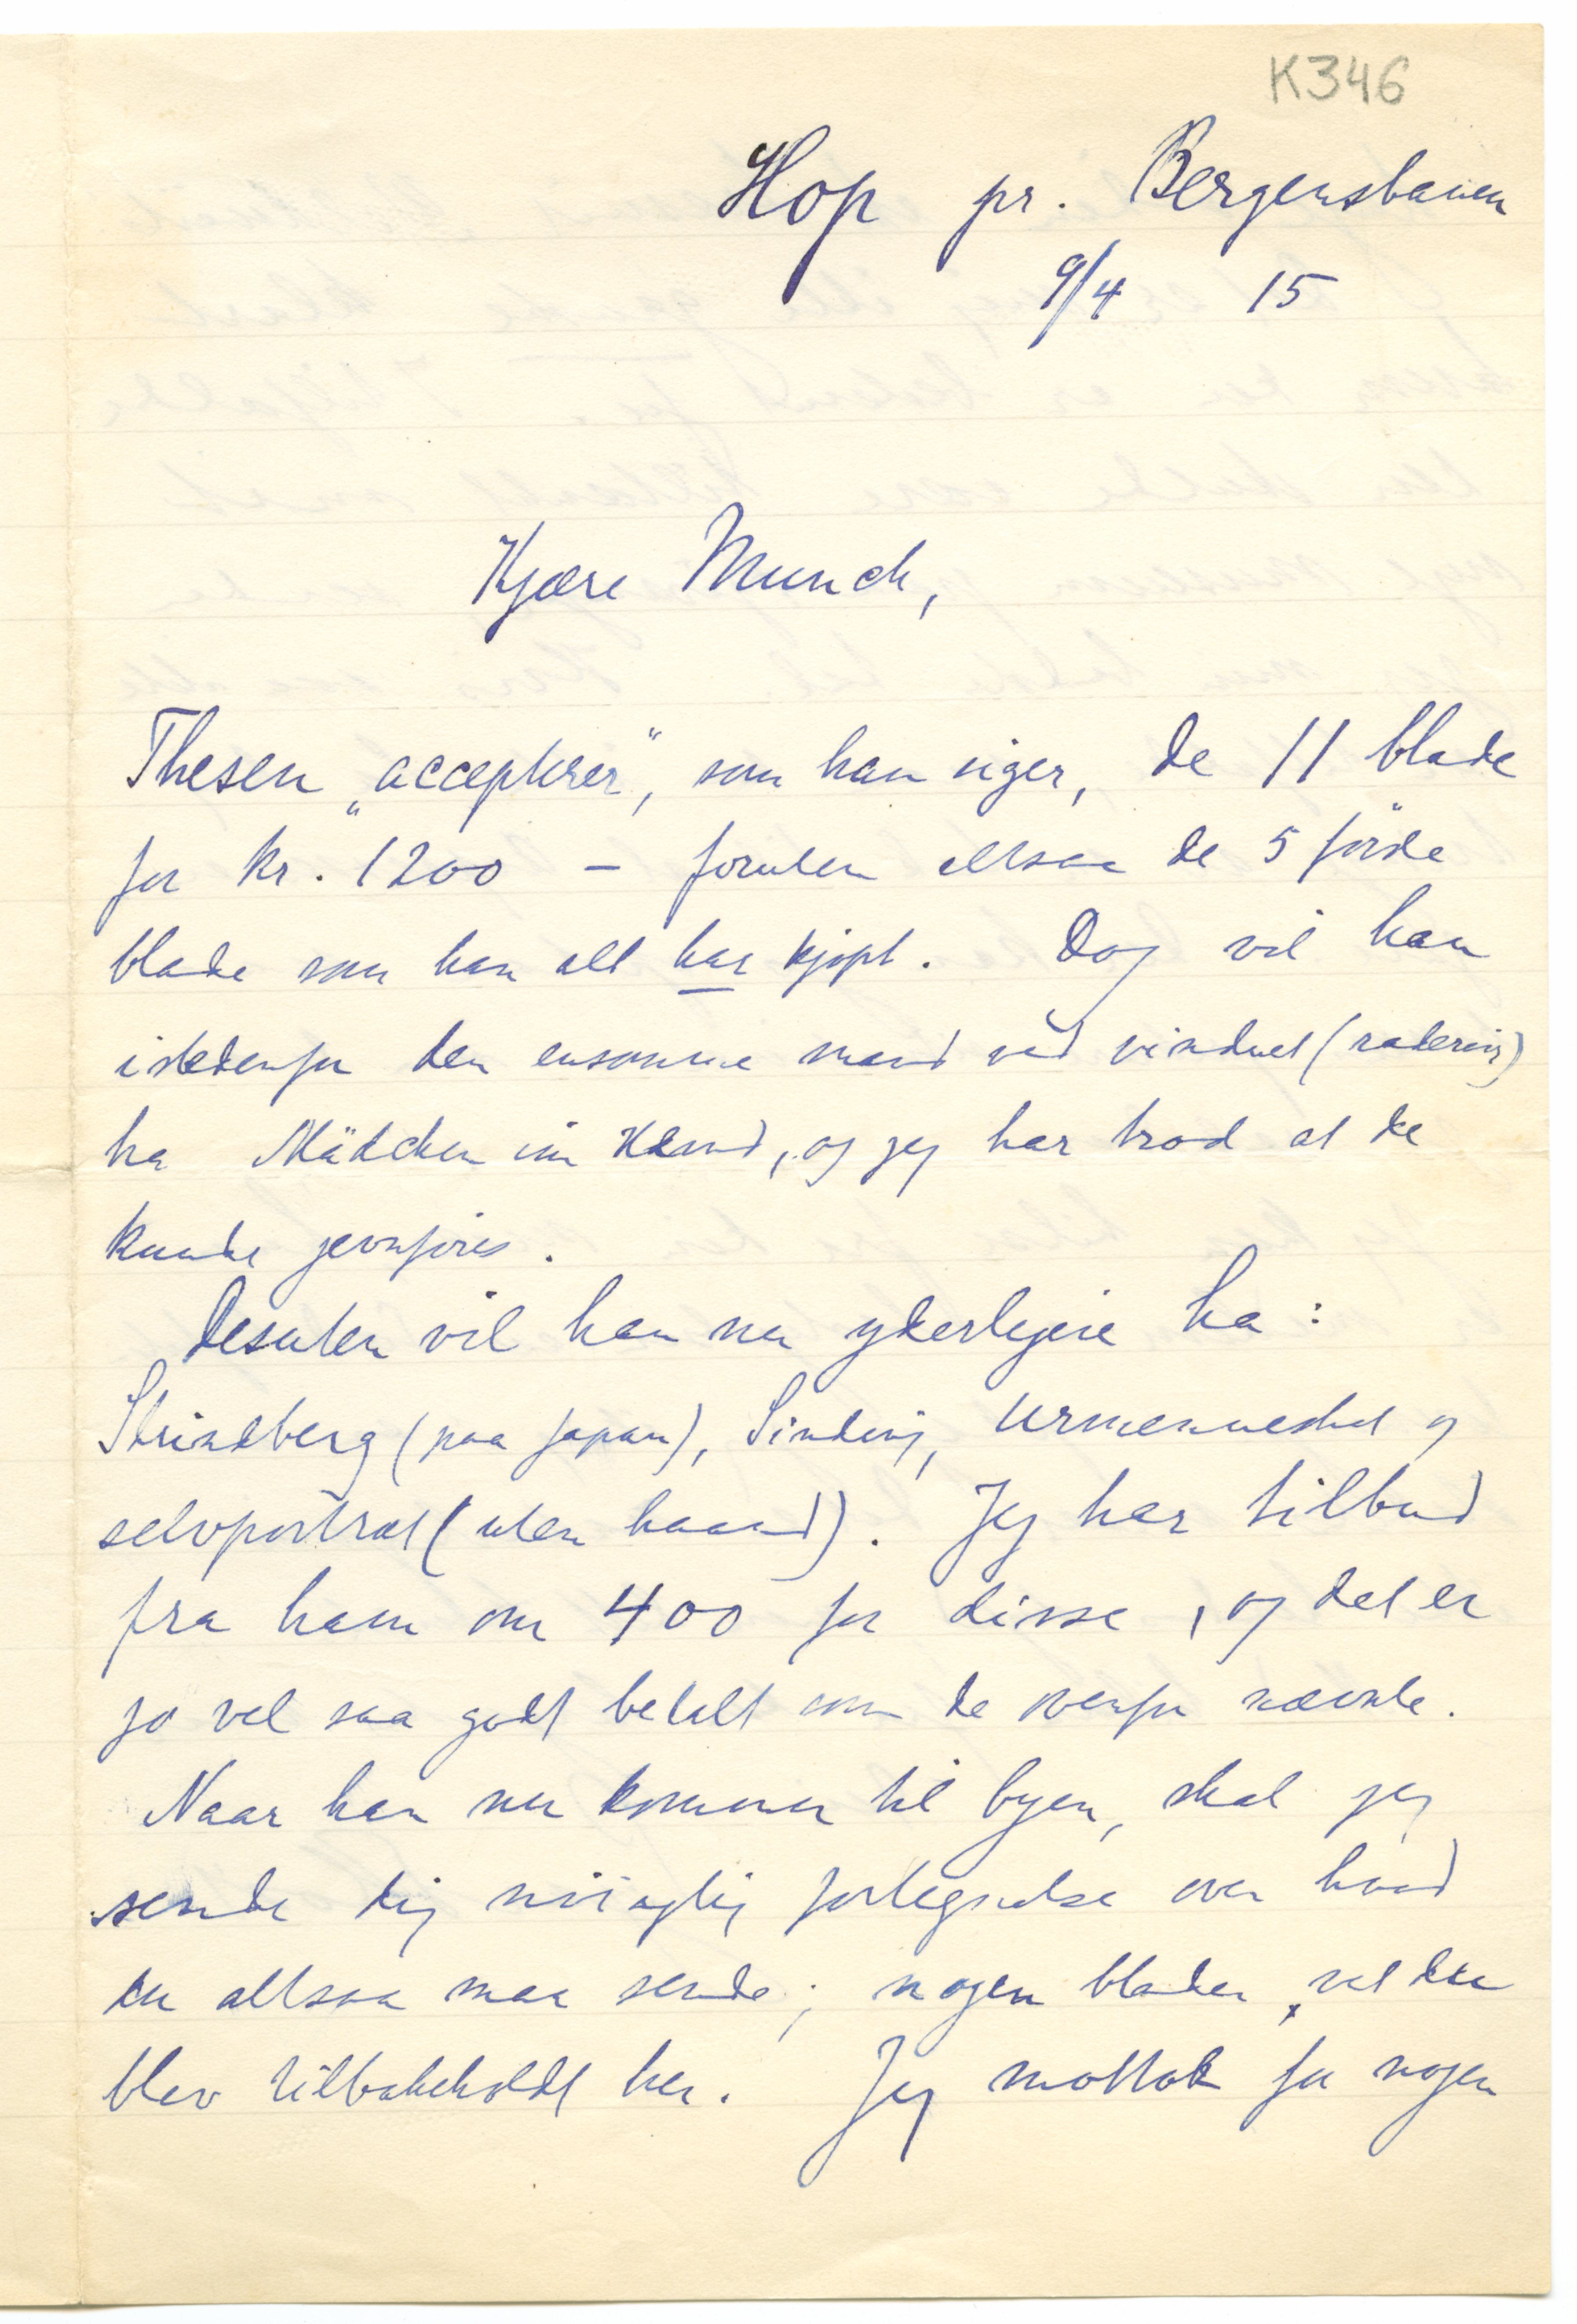 K346
Hop pr. Bergensbanen
9/4 15
Kjære Munch,
Thesen „accepterer“, som han siger, de 11 blade
for kr. 1200 – foruten altsaa de 5 förste
blade som han alt har kjøpt. Dog vil han
istedenfor den ensomme mand ved vinduet (radering)
ha Mädchen im Hemd, og jeg har trod at de
kunde jevnføres.
Desuten vil han nu yderligere ha:
Strindberg (paa japan), Sinding, Urmennesket og
selvportræt (uten haand). Jeg har tilbud
fra ham om 400 for disse, og det er
jo vel saa godt betalt som de ovenfor nævnte.
Naar han nu kommer til byen, skal jeg
sende dig nöiagtig fortegnelse over hvad
du altsaa maa sende; nogen blader, vet du
blev tilbakeholdt her. Jeg mottok for nogen